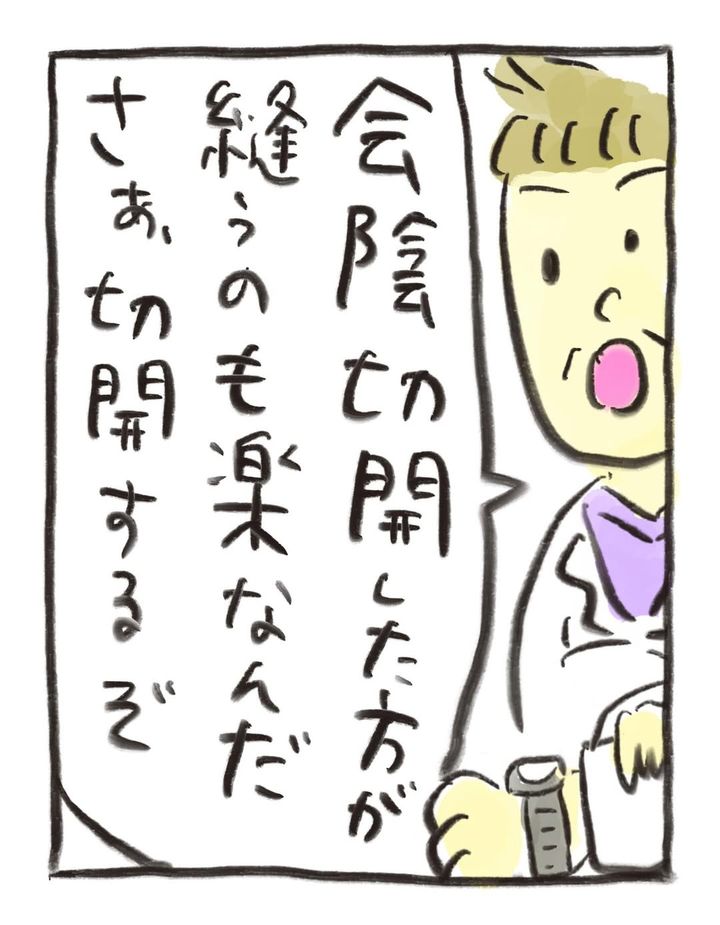 会陰切開した方が
縫うのも楽なんだ
さぁ、切開するぞ